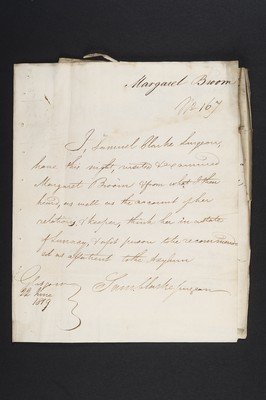 Margaret Broom
No 167
I, Samuel Clarke Surgeon,
have this night, visited & examined
Margaret Broom & from what I then
heard, as well as the account of her
relations, & keeper, think her in a state
of Lunacy, & a fit person to be recommend
ed as a patient to the Asylum
Glasgow
22 June
1819
Saml Clarke Surgeon